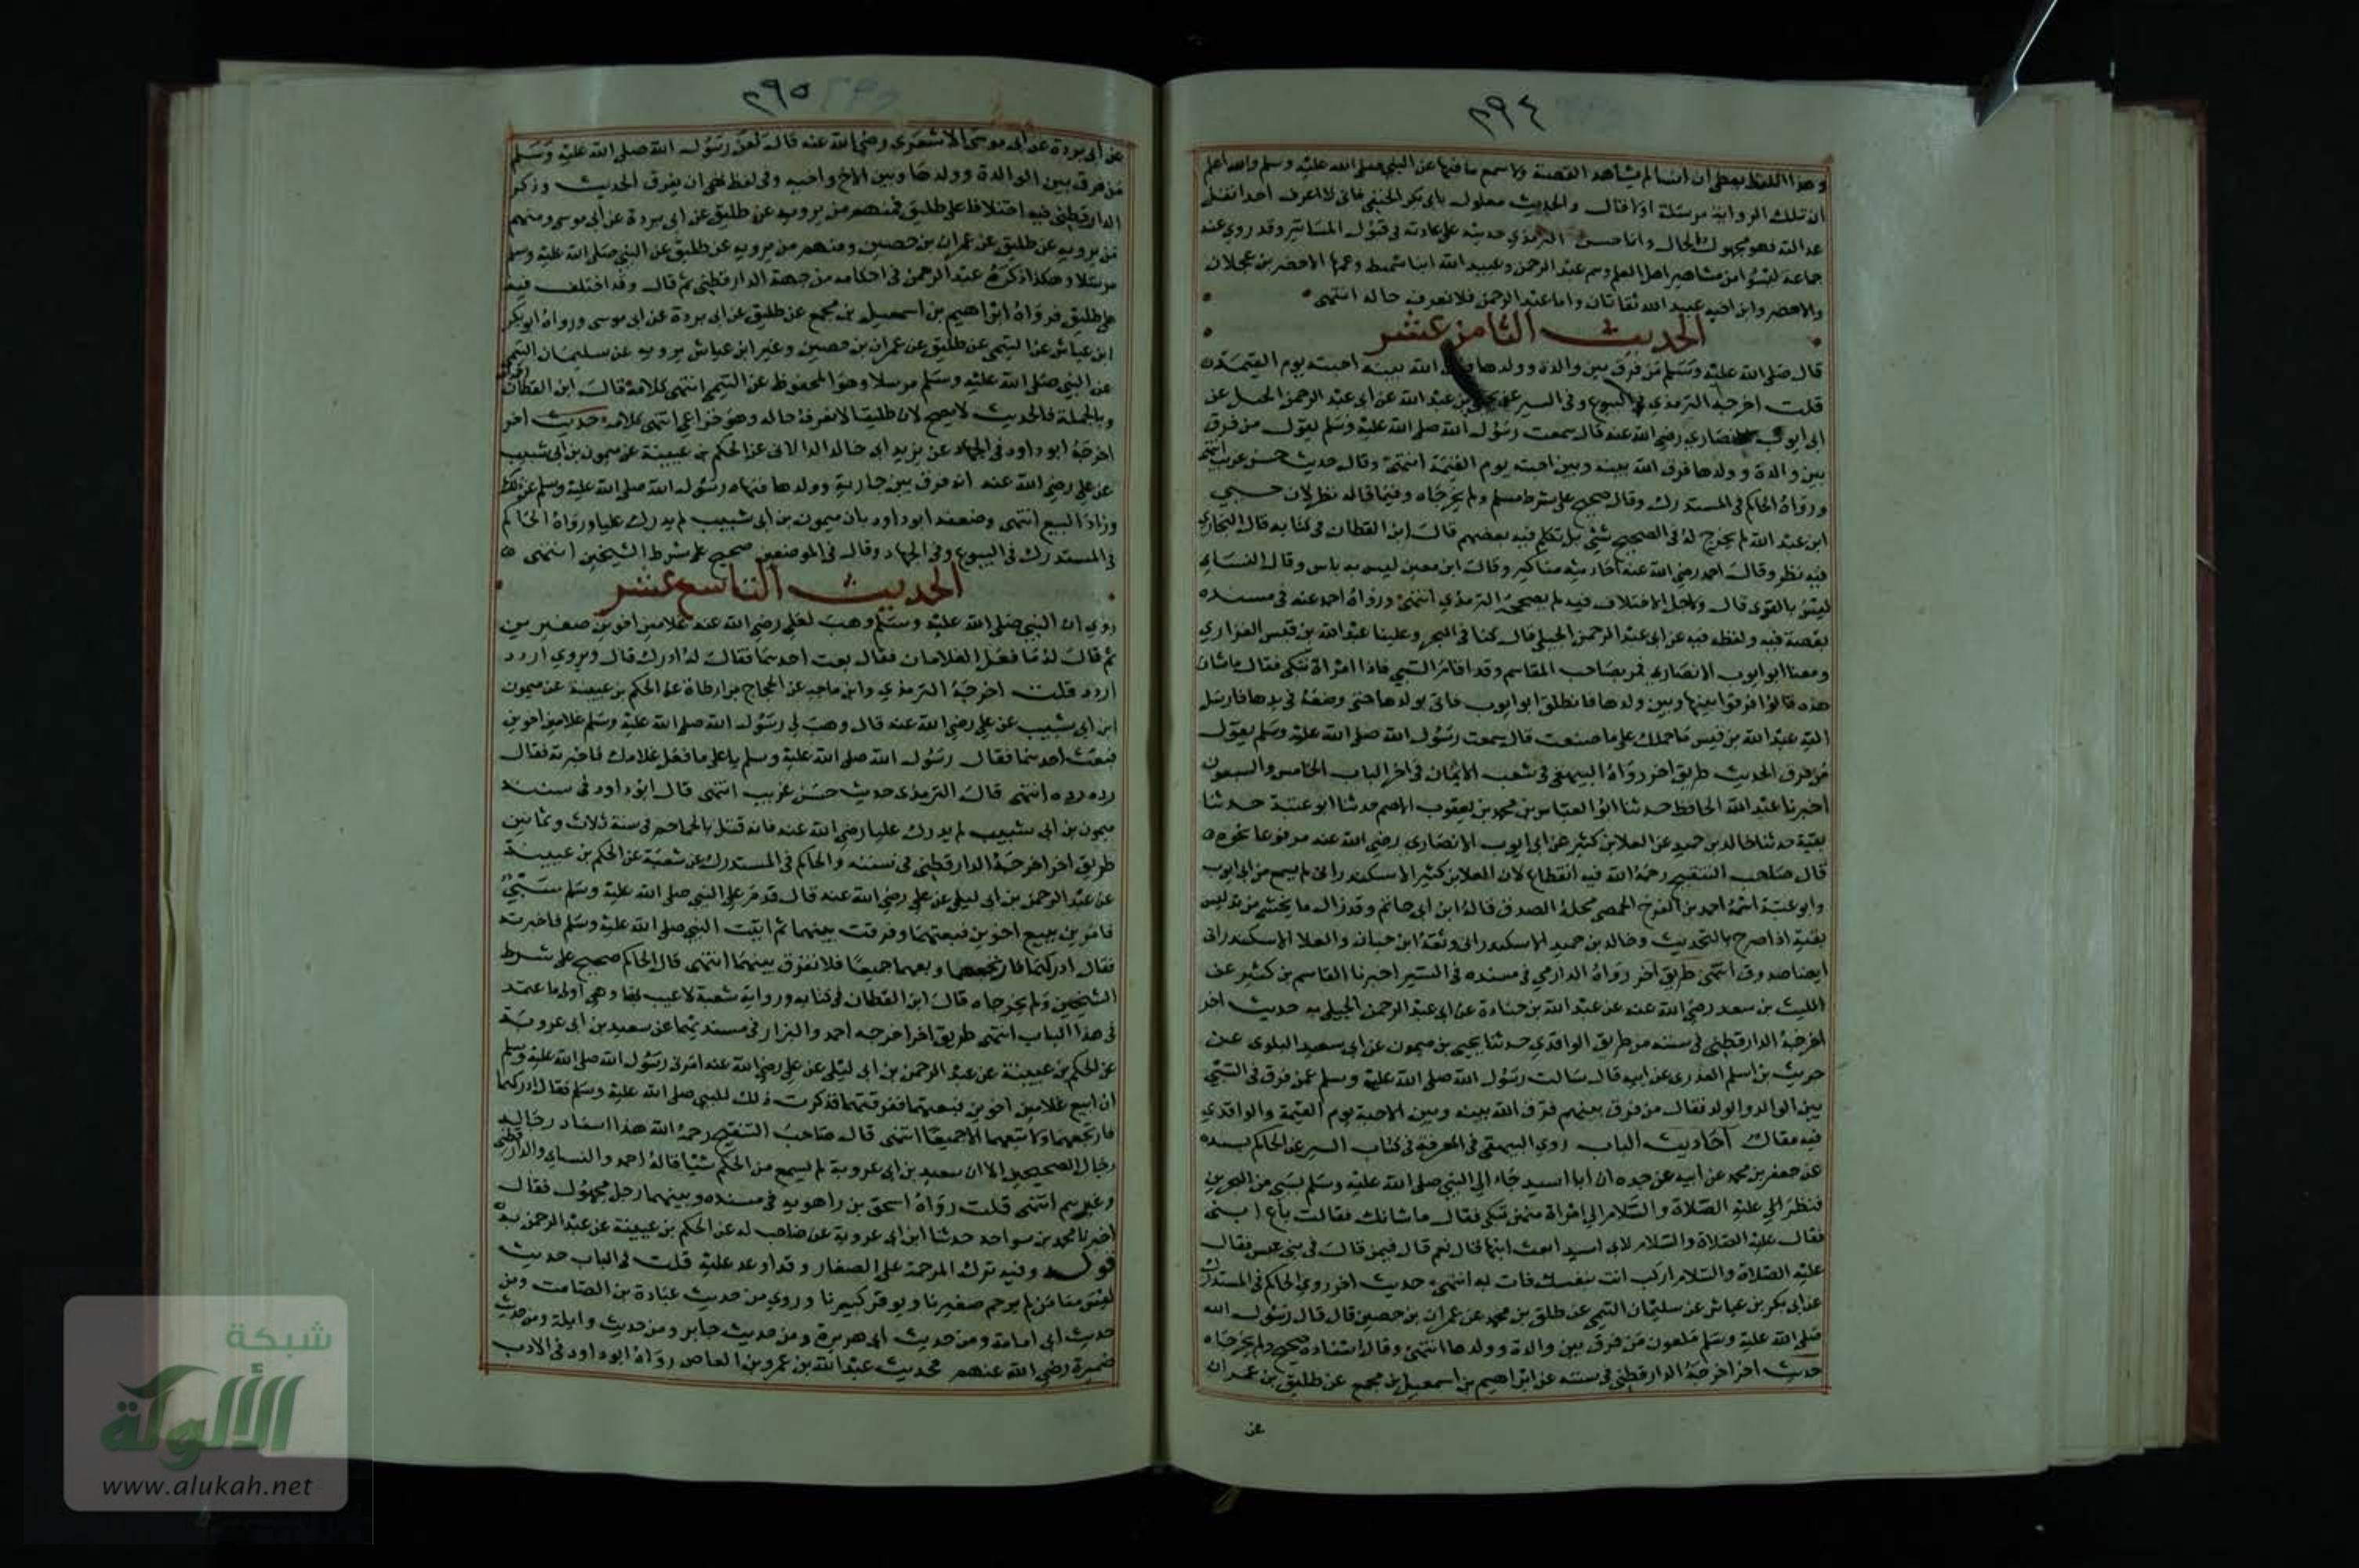 ٣٩٤
وهذا اللفظ يعطي ان انسا لم يشاهد القصة ولا سمع ما فيها عن النبي صلى الله عليه وسلم والله اعلم
ان تلك الرواية مرسلة اولا قال والحديث معلول بابي بكر الحنفي فاني لا اعرف احدا نقل
عدالته فهو مجهول الحال وانما حسن الترمذي حديثه على عادته في قبول المساتير وقد روي عنه
جماعة ليسوا من مشاهير اهل العلم وهم عبد الرحمن وعبيد الله ابنا شميط وعمهما الاخضر بن عجلان
والاخضر وابن اخيه عبيد الله ثقاتان واما عبد الرحمن فلا نعرف حاله انتهى
الحديث الثامن عشر
قال صلى الله عليه وسلم من فرق بين والدة وولدها فرق الله بينه احبته يوم القيمة
قلت اخرجه الترمذي في البيوع وفي السير عن بن عبد الله عن ابي عبد الرحمن الحبلى عن
ابي ايوب الانصاري رضي الله عنه قال سمعت رسول الله صلى الله عليه وسلم يقول من فرق
بين والدة وولدها فرق الله بينه وبين احبته يوم القيمة انتهى وقال حديث حسن غريب انتهى
ورواه الحاكم في المستدرك وقال صحيح على شرط مسلم ولم يخرجاه وفيما قاله نظر لان حيي
ابن عبد الله لم يخرج له في الصحيح شيء بل تكلم فيه بعضهم قال ابن القطان في كتابه قال البخاري
فيه نظر وقال احمد رضي الله عنه احاديثه مناكير وقال ابن معين ليس به باس وقال النساي
ليس بالقوي قال ولاجل الاختلاف فيه لم يصححه الترمذي انتهى ورواه احمد عنه في مسنده
بقصة فيه ولفظه فيه عن ابي عبد الرحمن الحبلي قال كنا في البحر وعلينا عبد الله بن قيس الفزاري
ومعنا ابو ايوب الانصاري فمر بصاحب المقاسم وقد اقام السبي فاذا امراة تبكي فقال ما شان
هذه قالوا فرقوا بينها وبين ولدها فانطلق ابو ايوب فاتى بولدها حتى وضعه في يدها فارسل
اليه عبد الله بن قيس ما حملك على ما صنعت قال سمعت رسول الله صلى الله عليه وسلم يقول
من فرق الحديث طريق اخر رواه البيهقي في شعب الايمان في اخر الباب الخامس والسبعون
اخبرنا عبد الله الحافظ حدثنا ابو العباس بن محمد بن يعقوب الاصم حدثنا ابو عتبة حدثنا
بقية حدثنا خالد بن حميد عن العلا بن كثير عن ابي ايوب الانصاري رضي الله عنه مرفوعا نحوه
قال صاحب التنقيح رحمه الله فيه انقطاع لان العلا بن كثير الاسكندراني لم يسمع من ابي ايوب
وابو عتبة اسمه احمد بن الفرج الحمصي محله الصدق قاله ابن ابي حاتم وقد زال ما يخشى من تدليس
بقية اذا صرح بالتحديث وخالد بن حميد الاسكندراني وثقه ابن حبان والعلا الاسكندراني
ايضا صدوق انتهى طريق اخر رواه الدارمي في مسنده في السير اخبرنا القاسم بن كثير عن
الليث بن سعد رضي الله عنه عن عبد الله بن جنادة عن ابي عبد الرحمن الجبلي به حديث اخر
اخرجه الدارقطني في سننه من طريق الواقدي حدثنا يحيى بن ميمون عن ابي سعيد البلوي عن
حريث بن اسلم العذري عن ابيه قال سالت رسول الله صلى الله عليه وسلم عمن فرق في السبي
بين الوالد والولد فقال من فرق بينهم فرق الله بينه وبين الاحبة يوم القيمة والواقدي
فيه مقال احاديث الباب روي البيهقي في المعرفة في كتاب السير عن الحاكم بسنده
عن جعفر بن محمد عن ابيه عن جده ان ابا اسيد جاء الى النبي صلى الله عليه وسلم بسبي من البحرين
فنظر الي عليه الصلاة والسلام الى امراة منهن تبكي فقال ما شانك فقالت باع ابني
فقال عليه الصلاة والسلام لابي اسيد ابعت ابنها قال نعم قال فيمن قال في بني عبس فقال
عليه الصلاة والسلام اركب انت بنفسك فات به انتهى حديث اخر روي الحاكم في المستدرك
عن ابي بكر بن عياش عن سليمان التيمي عن طلق بن محمد عن عمران بن حصين قال قال رسول الله
صلى الله عليه وسلم ملعون من فرق بين والدة وولدها انتهى وقال اسناده صحيح ولم يخرجاه
حديث اخر اخرجه الدارقطني في سننه عن ابراهيم بن اسمعيل بن مجمع عن طليق بن عمران
عن
٣٩٥
عن ابي بردة عن ابي موسى الاشعري رضي الله عنه قال لعن رسول الله صلى الله عليه وسلم
من فرق بين الوالدة وولدها وبين الاخ واخيه وفي لفظ نهى ان يفرق الحديث وذكر
الدارقطني فيه اختلافا على طليق فمنهم من يرويه عن طليق عن ابي بردة عن ابي موسى ومنهم
من يرويه عن طليق عن عمران بن حصين ومنهم من يرويه عن طليق عن النبي صلى الله عليه وسلم
مرسلا وهكذا ذكره عبد الرحمن في احكامه من جهة الدارقطني ثم قال وقد اختلف فيه
على طليق فرواه ابراهيم بن اسمعيل بن مجمع عن طليق عن ابي بردة عن ابي موسى ورواه ابو بكر
ابن عياش عن التيمي عن طليق عن عمران بن حصين وغير ابن عياش يرويه عن سليمان التيمي
عن النبي صلى الله عليه وسلم مرسلا وهو المحفوظ عن التيمي انتهى كلامه قال ابن القطان
وبالجملة فالحديث لا يصح لان طليقا لا نعرف حاله وهو خزاعي انتهى كلامه حديث اخر
اخرجه ابو داود في الجهاد عن يزيد ابي خالد الدالاني عن الحكم بن عيينة عن ميمون بن ابي شبيب
عن علي رضي الله عنه انه فرق بين جارية وولدها فنهاه رسول الله صلى الله عليه وسلم عن ذلك
ورد البيع انتهى وضعفه ابو داود بان ميمون بن ابي شبيب لم يدرك عليا ورواه الحاكم
في المستدرك في البيوع وفي الجهاد وقال في الموضعين صحيح على شرط الشيخين انتهى
الحديث التاسع عشر
روي ان النبي صلى الله عليه وسلم وهب لعلي رضي الله عنه غلامين اخوين صغيرين
ثم قال له ما فعل الغلامان فقال بعت احدهما فقال له ادرك قال ويروي اردد
اردد قلت اخرجه الترمذي وابن ماجه عن الحجاج بن ارطاة عن الحكم بن عيينة عن ميمون
ابن ابي شبيب عن علي رضي الله عنه قال وهب لي رسول الله صلى الله عليه وسلم غلامين اخوين
فبعث احدهما فقال رسول الله صلى الله عليه وسلم يا علي ما فعل غلامك فاخبرته فقال
رده رده انتهى قال الترمذي حديث حسن غريب انتهى قال ابو داود في سننه
ميمون بن ابي شبيب لم يدرك عليا رضي الله عنه فانه قتل بالجماجم في سنة ثلاث وثمانين
طريق اخر اخرجه الدارقطني في سننه والحاكم في المستدرك عن شعبة عن الحكم بن عيينة
عن عبد الرحمن بن ابي ليلى عن علي رضي الله عنه قال قدم على النبي صلى الله عليه وسلم سبي
فامرني ببيع اخوين فبعتهما وفرقت بينهما ثم اتيت النبي صلى الله عليه وسلم فاخبرته
فقال ادركهما فارتجعهما وبعهما جميعا فلا تفرق بينهما انتهى قال الحاكم صحيح على شرط
الشيخين ولم يخرجاه قال ابن القطان في كتابه ورواية شعبة لا عيب لها وهي اولى ما عتمد
في هذا الباب انتهى طريق اخر اخرجه احمد والبزار في مسنديهما عن سعيد بن ابي عروبة
عن الحكم بن عيينة عن عبد الرحمن بن ابي ليلى عن علي رضي الله عنه امرني رسول الله صلى الله عليه وسلم
ان ابيع غلامين اخوين فبعتهما ففرقتهما فذكرت ذلك للنبي صلى الله عليه وسلم فقال ادركهما
فارتجعهما ولا تبعهما الا جميعا انتهى قال صاحب التنقيح رحمه الله هذا اسناد رجاله
رجال الصحيحين الا ان سعيد بن ابي عروبة لم يسمع من الحكم شيئا قاله احمد والنساي والدارقطني
وغيرهم انتهى قلت رواه اسحق بن راهويه في مسنده وبينهما رجل مجهول فقال
اخبرنا محمد بن سواحد حدثنا ابن ابي عروبة عن صاحب له عن الحكم بن عيينة عن عبد الرحمن به
قوله وفيه ترك المرحمة على الصغار وقد اوعد عليه قلت في الباب حديث
ليس منا من لم يرحم صغيرنا ويوقر كبيرنا وروي من حديث عبادة بن الصامت ومن
حديث ابي امامة ومن حديث ابي هريرة ومن حديث جابر ومن حديث واثلة ومن حديث
ضميرة رضي الله عنهم فحديث عبد الله بن عمرو بن العاص رواه ابو داود في الادب
شبكة
الألوكة
www.alukah.net